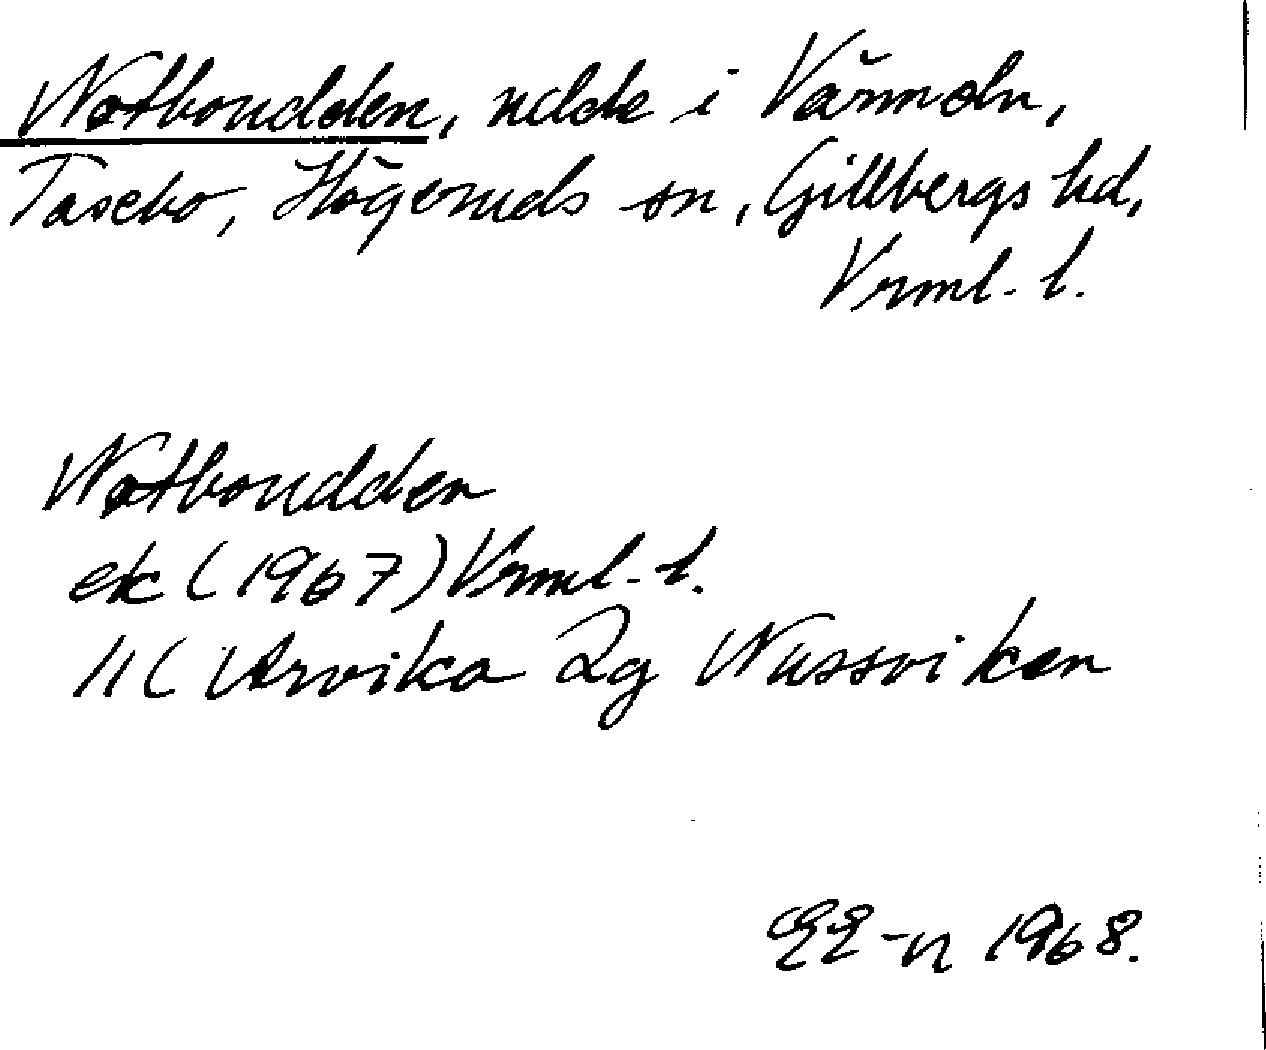 Notboudden, udde i Värmeln,
Tasebo, Högeruds sn, Gillbergs hd,
Vrml. l.
Notboudden
ek (1967) Vrml. l.
11C Arvika 2g Nussviken
EE-n 1968.